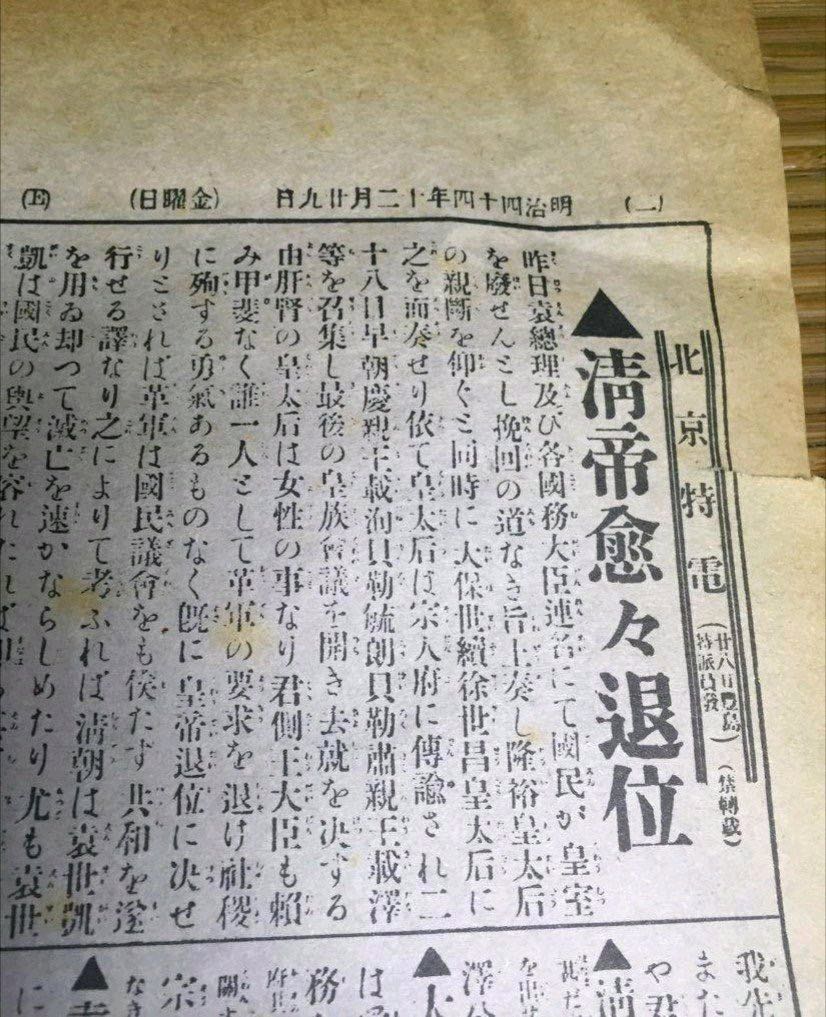 (二) 明治四十四年十二月廿九日 (金曜日) (日)
北京特電 (廿八日豊島特派員發) (禁轉載)
▲清帝愈々退位
昨日袁總理及び各國務大臣連名にて國民が皇室
を廢せんとし挽回の道なき旨上奏し隆裕皇太后
の親斷を仰ぐと同時に太保世續徐世昌皇太后に
之を面奏せり依て皇太后は宗人府に傳諭され二
十八日早朝慶親王載洵貝勒毓朗貝勒肅親王載澤
等を召集し最後の皇族會議を開き去就を決する
由肝腎の皇太后は女性の事なり君側王大臣も賴
み甲斐なく誰一人として革軍の要求を退け社稷
に殉する勇氣あるものなく既に皇帝退位に決せ
りとされば革軍は國民議會をも俟たす共和を遂
行せる譯なり之によりて考ふれば清朝は袁世凱
を用ゐ却つて滅亡を速かならしめたり尤も袁世
凱は國民の輿望を容れたれば
我先
また
や君
▲清
澤公
▲大
は
務
宗
▲
に